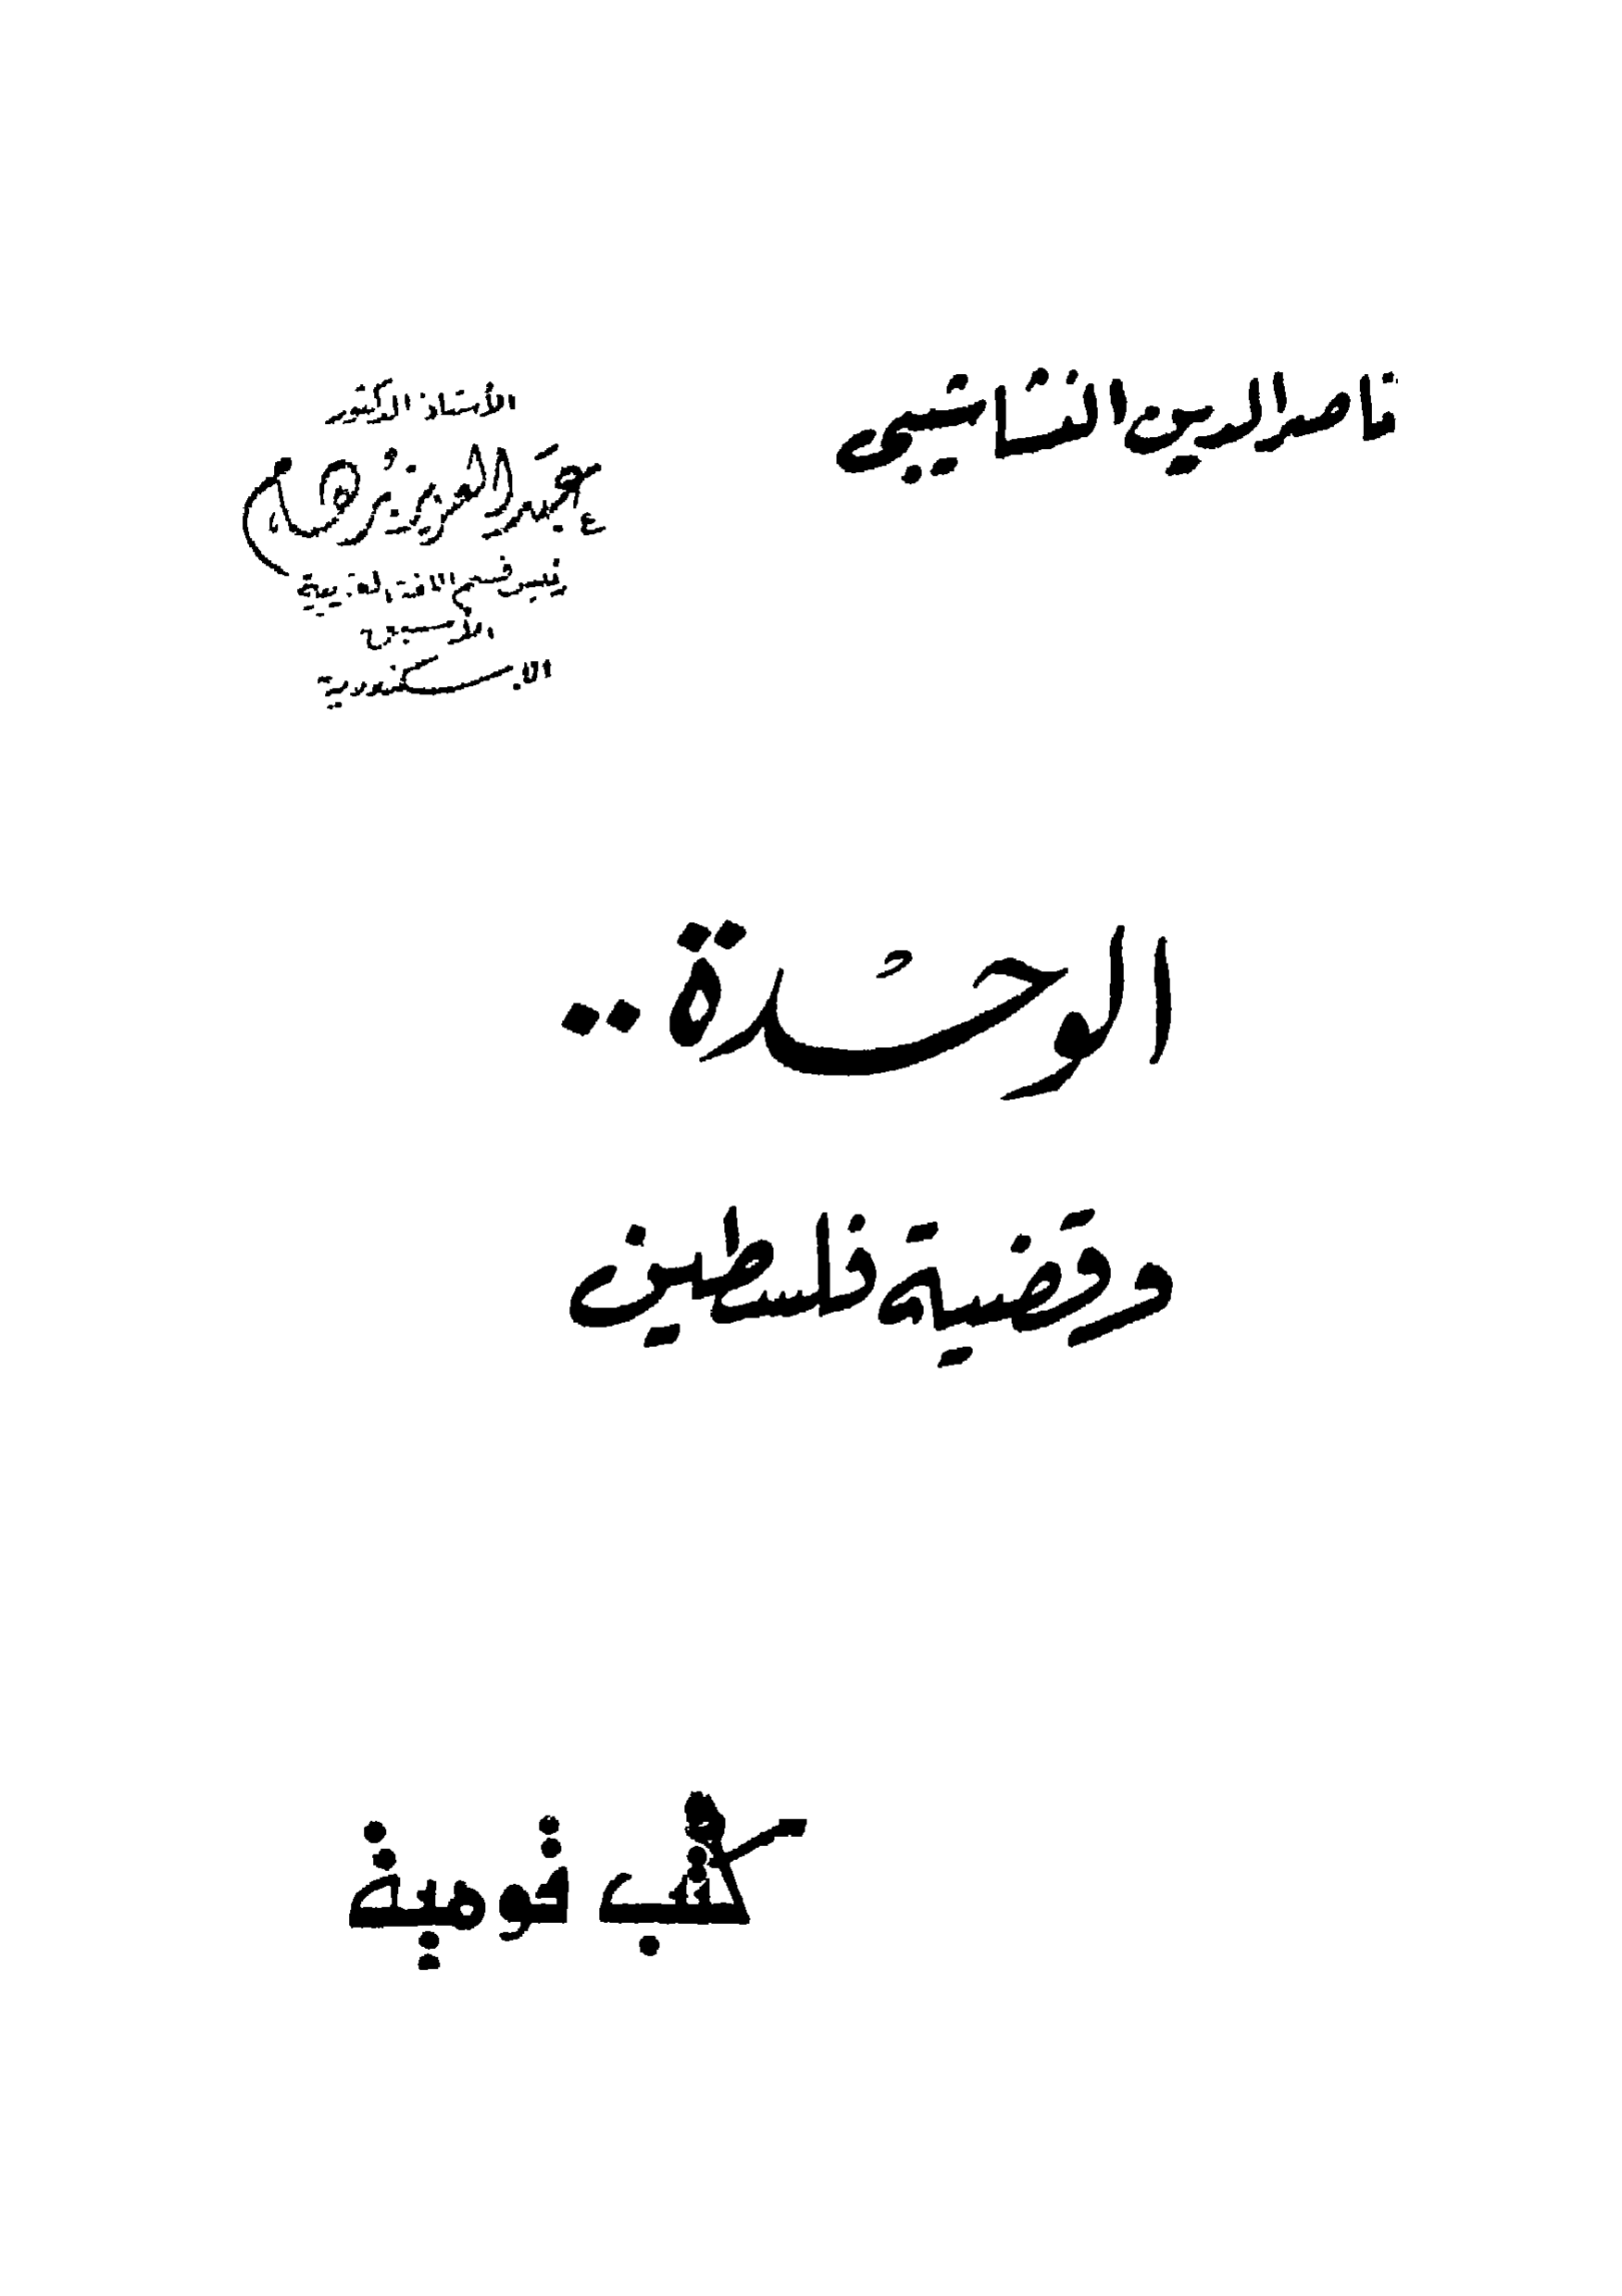 ناصر الدين النشاشيبى
الأستاذ الدكتور
عبد العزيز برهام
رئيس قسم اللغة العربية
الأسبق
الإسكندرية
الوحدة ..
وقضية فلسطين
كتب قومية